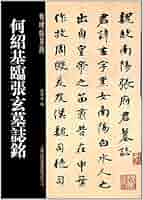 何紹基臨張玄墓誌銘
魏故南陽張府君墓誌
君諱玄字黑女南陽白水人
也出自皇帝之苗裔昔在中葉
作牧周殷爰及漢魏司徒司